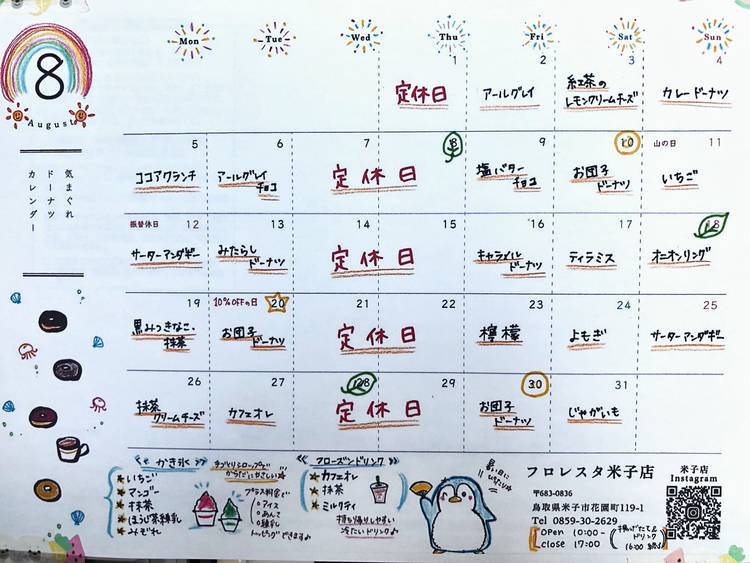 8
August
気まぐれ
ドーナツ
カレンダー
Mon Tue Wed Thu Fri Sat Sun
1 2 3 4
定休日
アールグレイ
紅茶の
レモンクリームチーズ
カレードーナツ
5 6 7 8 9 10 山の日 11
ココアクランチ
アールグレイ
チョコ
定休日
塩バター
チョコ
お団子
ドーナツ
いちご
振替休日 12 13 14 15 16 17 18
サーターアンダギー
みたらし
ドーナツ
定休日
キャラメル
ドーナツ
ティラミス
オニオンリング
19 10%OFFの日 20 21 22 23 24 25
黒みつきなこ、
抹茶
お団子
ドーナツ
定休日
檸檬
よもぎ
サーターアンダギー
26 27 28 29 30 31
抹茶
クリームチーズ
カフェオレ
定休日
お団子
ドーナツ
じゃがいも
かき氷
いちご
マンゴー
抹茶
ほうじ茶練乳
みぞれ
手づくりシロップで
からだにやさしい
プラス料金で
アイス
あんこ
練乳
トッピングできます♪
フローズンドリンク
カフェオレ
抹茶
ミルクティ
持ち帰りしやすい
冷たいドリンク♪
暑い日に
フロレスタ米子店
〒683-0836
鳥取県米子市花園町119-1
Tel 0859-30-2629
Open 10:00-
close 17:00
揚げたて&
ドリンク
米子店
Instagram